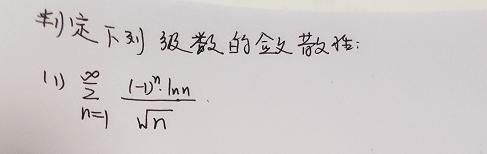 判定下列级数的敛散性:
(1) ∞ Σ n=1 (-1)^n · ln n / √n